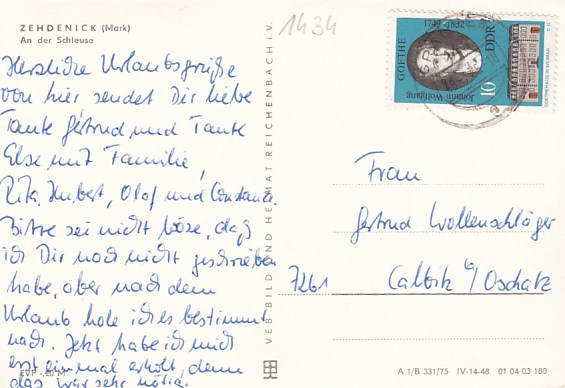 ZEHDENICK (Mark)
An der Schleuse
1434
Herzliche Urlaubsgrüße
von hier sendet Dir liebe
Tante Gertrud und Tante
Else mit Familie,
Rita, Hubert, Olaf und Constanze.
Bitte sei nicht böse, daß
ich Dir noch nicht geschrieben
habe, aber nach dem
Urlaub hole ich es bestimmt
nach. Jetzt habe ich mich
erst einmal erholt, denn
das war sehr nötig.
EVP -,20 M
VEB BILD UND HEIMAT REICHENBACH i.V.
GOETHE
Johann Wolfgang
10
DDR
Frau
Gertrud Wollenschläger
7261 Calbitz ü/ Oschatz
A 1/B 331/75 IV-14-48 01 04 03 180